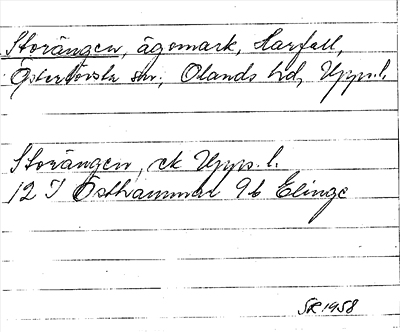 Storängen, ägomark, Harfall,
Österlövsta sn, Olands hd, Upps.l.
Storängen, ek Upps.l.
12 I Östhammar 9b Elinge
SR 1958